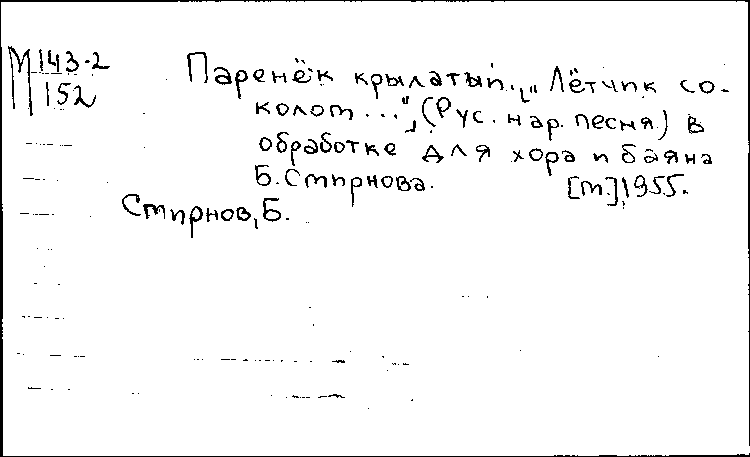 М 143-2
152
Паренёк крылатый. [„Лётчик со-
колом ...“] (Рус. нар. песня) в
обработке для хора и баяна
Б. Смирнова. [М.], 1955.
Смирнов, Б.